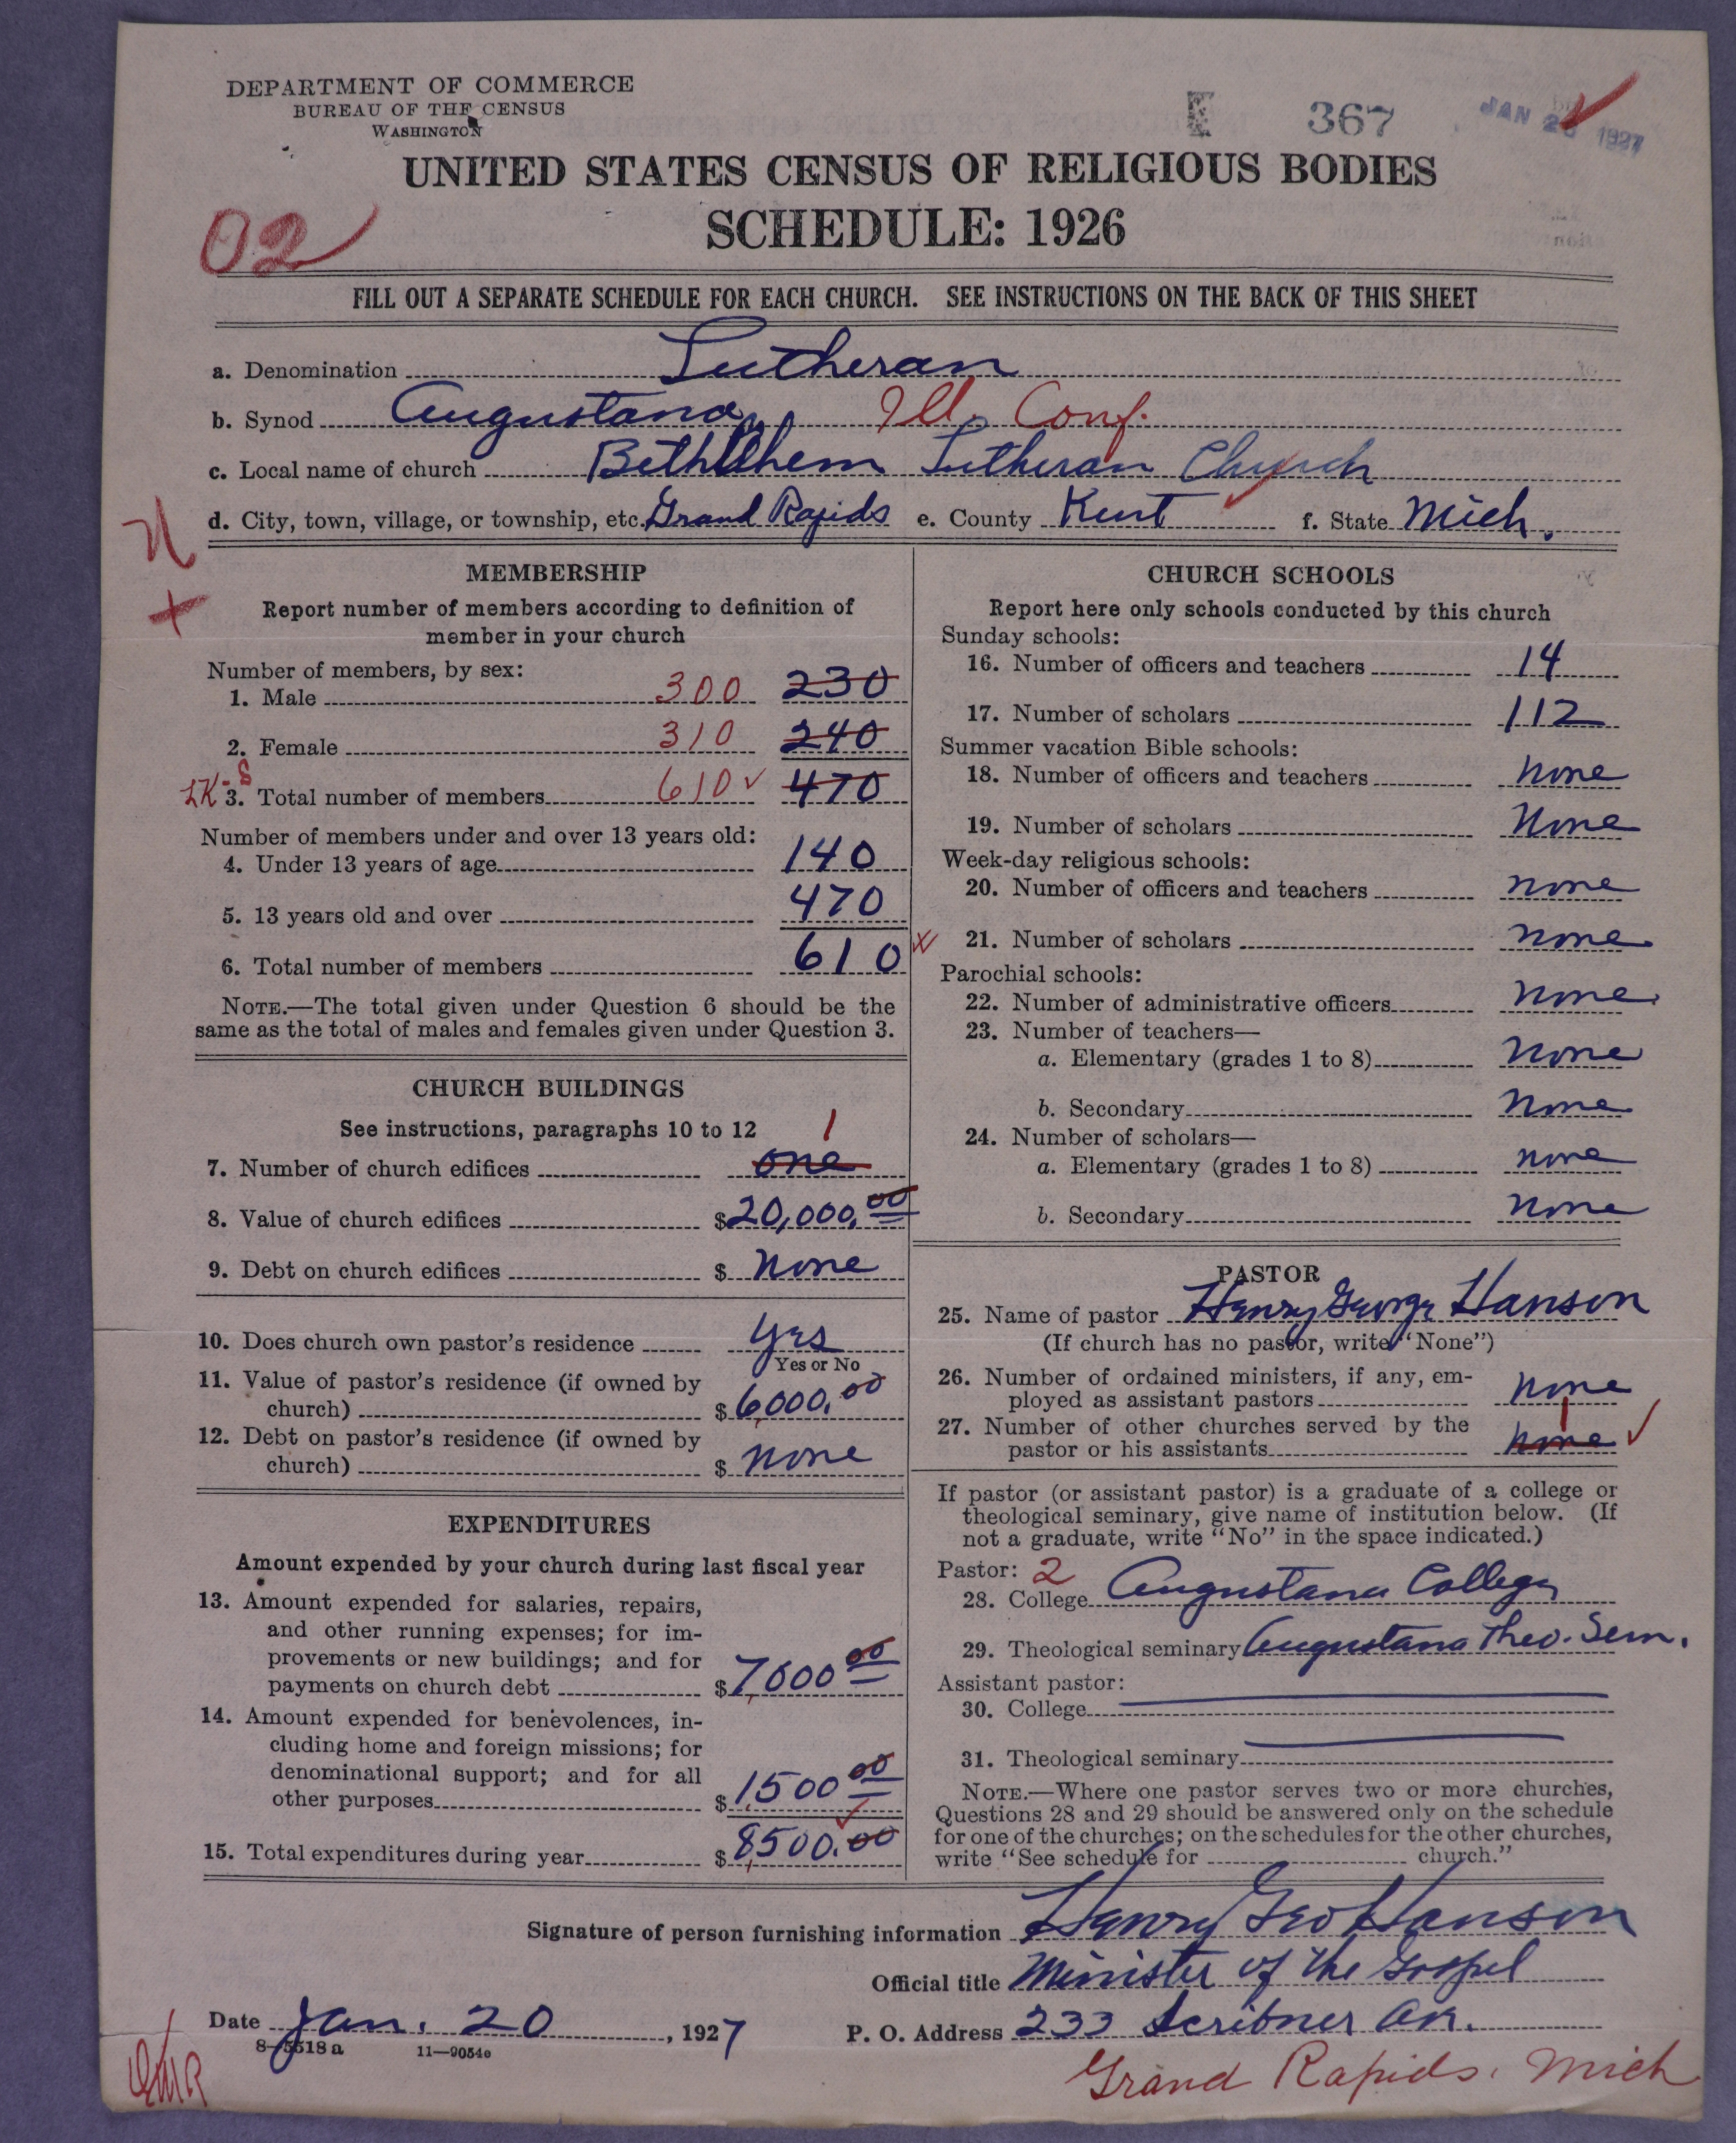 DEPARTMENT OF COMMERCE
BUREAU OF THE CENSUS
WASHINGTON
367
JAN 1927
UNITED STATES CENSUS OF RELIGIOUS BODIES
SCHEDULE: 1926
02
FILL OUT A SEPARATE SCHEDULE FOR EACH CHURCH. SEE INSTRUCTIONS ON THE BACK OF THIS SHEET
a. Denomination Lutheran
b. Synod Augustana, Ill. Conf.
c. Local name of church Bethlehem Lutheran Church
d. City, town, village, or township, etc. Grand Rapids e. County Kent f. State Mich.
MEMBERSHIP
Report number of members according to definition of
member in your church
Number of members, by sex:
1. Male 300 230
2. Female 310 240
3. Total number of members 610 ✓ 470
Number of members under and over 13 years old:
4. Under 13 years of age 140
5. 13 years old and over 470
6. Total number of members 610
NOTE.—The total given under Question 6 should be the
same as the total of males and females given under Question 3.
CHURCH BUILDINGS
See instructions, paragraphs 10 to 12 1
7. Number of church edifices one
8. Value of church edifices $20,000.00
9. Debt on church edifices $ None
10. Does church own pastor's residence Yes
Yes or No
11. Value of pastor's residence (if owned by
church) $6,000.00
12. Debt on pastor's residence (if owned by
church) $ None
EXPENDITURES
Amount expended by your church during last fiscal year
13. Amount expended for salaries, repairs,
and other running expenses; for im-
provements or new buildings; and for
payments on church debt $7,000 00
14. Amount expended for benevolences, in-
cluding home and foreign missions; for
denominational support; and for all
other purposes $1,500 00
15. Total expenditures during year $8,500.00
CHURCH SCHOOLS
Report here only schools conducted by this church
Sunday schools:
16. Number of officers and teachers 14
17. Number of scholars 112
Summer vacation Bible schools:
18. Number of officers and teachers None
19. Number of scholars None
Week-day religious schools:
20. Number of officers and teachers None
21. Number of scholars None
Parochial schools:
22. Number of administrative officers None
23. Number of teachers—
a. Elementary (grades 1 to 8) None
b. Secondary None
24. Number of scholars—
a. Elementary (grades 1 to 8) None
b. Secondary None
PASTOR
25. Name of pastor Henry George Hanson
(If church has no pastor, write "None")
26. Number of ordained ministers, if any, em-
ployed as assistant pastors None
27. Number of other churches served by the 1
pastor or his assistants None ✓
If pastor (or assistant pastor) is a graduate of a college or
theological seminary, give name of institution below. (If
not a graduate, write "No" in the space indicated.)
Pastor: 2
28. College Augustana College
29. Theological seminary Augustana Theo. Sem.
Assistant pastor:
30. College
31. Theological seminary
NOTE.—Where one pastor serves two or more churches,
Questions 28 and 29 should be answered only on the schedule
for one of the churches; on the schedules for the other churches,
write "See schedule for church."
Signature of person furnishing information Henry Geo Hanson
Official title Minister of the Gospel
Date Jan. 20, 1927 P. O. Address 233 Scribner Av.
8—5518 a 11—9054e
Grand Rapids, Mich